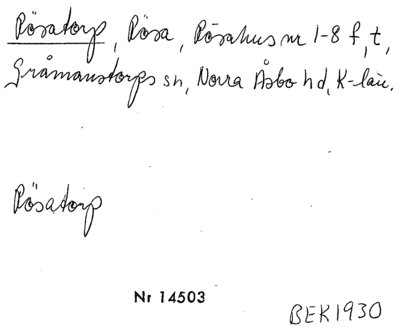 Rösatorp, Rösa, Rösahus nr 1-8 f, t,
Gråmanstorps sn, Norra Åsbo hd, K-län.
Rösatorp
Nr 14503
BEK1930